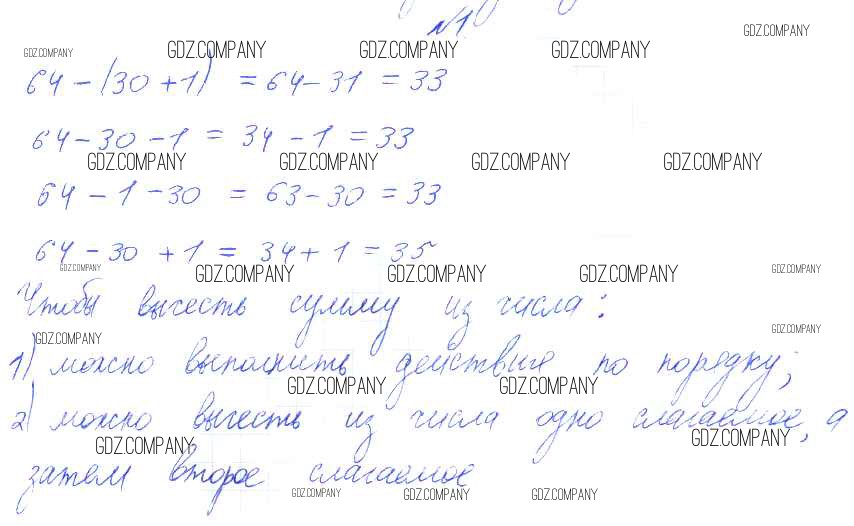 №1.
GDZ.COMPANY
GDZ.COMPANY GDZ.COMPANY GDZ.COMPANY GDZ.COMPANY
64 - (30 + 1) = 64 - 31 = 33
64 - 30 - 1 = 34 - 1 = 33
GDZ.COMPANY GDZ.COMPANY GDZ.COMPANY GDZ.COMPANY
64 - 1 - 30 = 63 - 30 = 33
64 - 30 + 1 = 34 + 1 = 35
GDZ.COMPANY GDZ.COMPANY GDZ.COMPANY GDZ.COMPANY GDZ.COMPANY
Чтобы вычесть сумму из числа:
GDZ.COMPANY GDZ.COMPANY
1) можно выполнить действие по порядку;
GDZ.COMPANY GDZ.COMPANY
2) можно вычесть из числа одно слагаемое, а
GDZ.COMPANY GDZ.COMPANY
затем второе слагаемое
GDZ.COMPANY GDZ.COMPANY GDZ.COMPANY